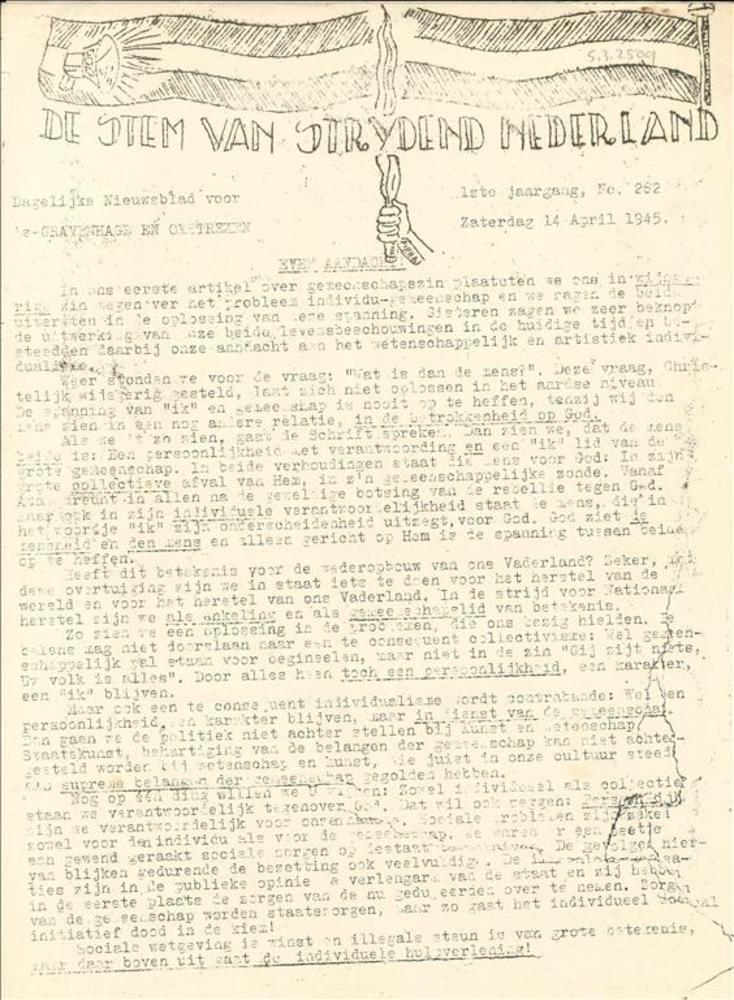 5.3.2509
DE STEM VAN STRYDEND NEDERLAND
Dagelijks Nieuwsblad voor
1ste jaargang, No. 262
's-GRAVENHAGE EN OMSTREKEN
Zaterdag 14 April 1945.
EVEN AANDACHT!
In ons eerste artikel over gemeenschapszin plaatsten we ons in
zin tegenover het probleem individu-gemeenschap en we zagen de beide
uitersten in de oplossing van deze spanning. Gisteren zagen we zeer beknopt
de uitwerking van onze beide levensbeschouwingen in de huidige tijd en be-
steedden daarbij onze aandacht aan het wetenschappelijk en artistiek indivi-
dualisme.
Weer stonden we voor de vraag: "Wat is dan de mens?". Deze vraag, Chris-
telijk wijsgerig gesteld, laat zich niet oplossen in het aardse niveau
De spanning van "ik" en gemeenschap is nooit op te heffen, tenzij wij den
mens zien in een nog andere relatie, in de betrokkenheid op God.
Als we 't zo zien, gaat de Schrift spreken. Dan zien we, dat de mens
beide is: Een persoonlijkheid met verantwoording en een "ik" lid van de
grote gemeenschap. In beide verhoudingen staat die mens voor God: In zijn
grote collectieve afval van Hem, in z'n gemeenschappelijke zonde. Vanaf
Adam dreunt in allen na de geweldige botsing van de rebellie tegen God.
Maar ook in zijn individuele verantwoordelijkheid staat de mens, die in
het woordje "ik" zijn onderscheidenheid uitzegt, voor God. God ziet de
mensheid en den mens en alleen gericht op Hem is de spanning tussen beide
op te heffen.
Heeft dit betekenis voor de wederopbouw van ons Vaderland? Zeker,
deze overtuiging zijn we in staat iets te doen voor het herstel van de
wereld en voor het herstel van ons Vaderland. In de strijd voor Nationaal
herstel zijn we als enkeling en als gemeenschapslid van betekenis.
Zo zien we een oplossing in de problemen, die ons bezig hielden. De
balans mag niet doorslaan naar een te consequent collectivisme: Wel gemeen-
schappelijk pal staan voor beginselen, maar niet in de zin "Gij zijt niets,
Uw volk is alles". Door alles heen toch een persoonlijkheid, een karakter,
een "ik" blijven.
Maar ook een te consequent individualisme wordt contrabande: Wel een
persoonlijkheid, een karakter blijven, maar in dienst van de gemeenschap.
Dan gaan we de politiek niet achter stellen bij kunst en wetenschap
Staatskunst, behartiging van de belangen der gemeenschap kan niet achter-
gesteld worden bij wetenschap en kunst, die juist in onze cultuur steeds
als supreme belangen der gemeenschap gegolden hebben.
Nog op één ding willen we U wijzen: Zowel individueel als collectief
staan we verantwoordelijk tegenover God. Dat wil ook zeggen: Persoonlijk
zijn we verantwoordelijk voor onzen naaste. Sociale problemen zijn zaken
zowel voor den individu als voor de gemeenschap. We waren er een beetje
aan gewend geraakt sociale zorgen op de staat De gevolgen hier-
van blijken gedurende de bezetting ook veelvuldig. De
ties zijn in de publieke opinie verlengarm van de staat en zij hebben
in de eerste plaats de zorgen van de nu gedupeerden over te nemen. Zorgen
van de gemeenschap worden staatszorgen, maar zo gaat het individueel sociaal
initiatief dood in de kiem!
Sociale wetgeving is winst en illegale steun is van grote betekenis,
maar daar boven uit gaat de individuele hulpverlening!